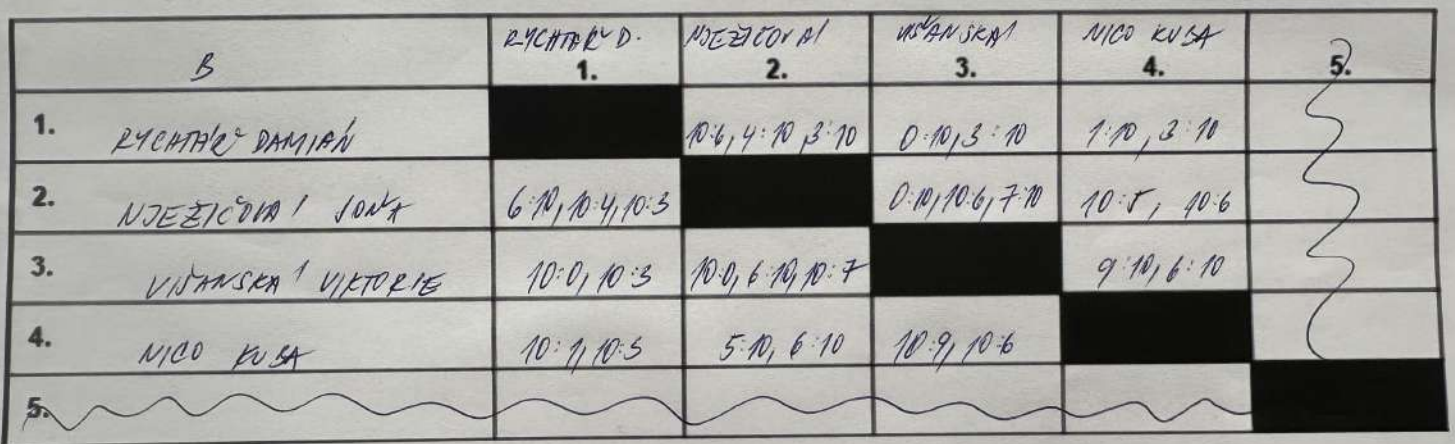 B RYCHTÁŘ D. NJEŽIČOVÁ VIŠŇANSKÁ NICO KUBA
1. 2. 3. 4. 5.
1. RYCHTÁŘ DAMIÁN 10:6, 4:10, 3:10 0:10, 3:10 1:10, 3:10
2. NJEŽIČOVÁ SOŇA 6:10, 10:4, 10:3 0:10, 10:6, 7:10 10:5, 10:6
3. VIŠŇANSKÁ VIKTORIE 10:0, 10:3 10:0, 6:10, 10:7 9:10, 6:10
4. NICO KUBA 10:1, 10:3 5:10, 6:10 10:9, 10:6
5.